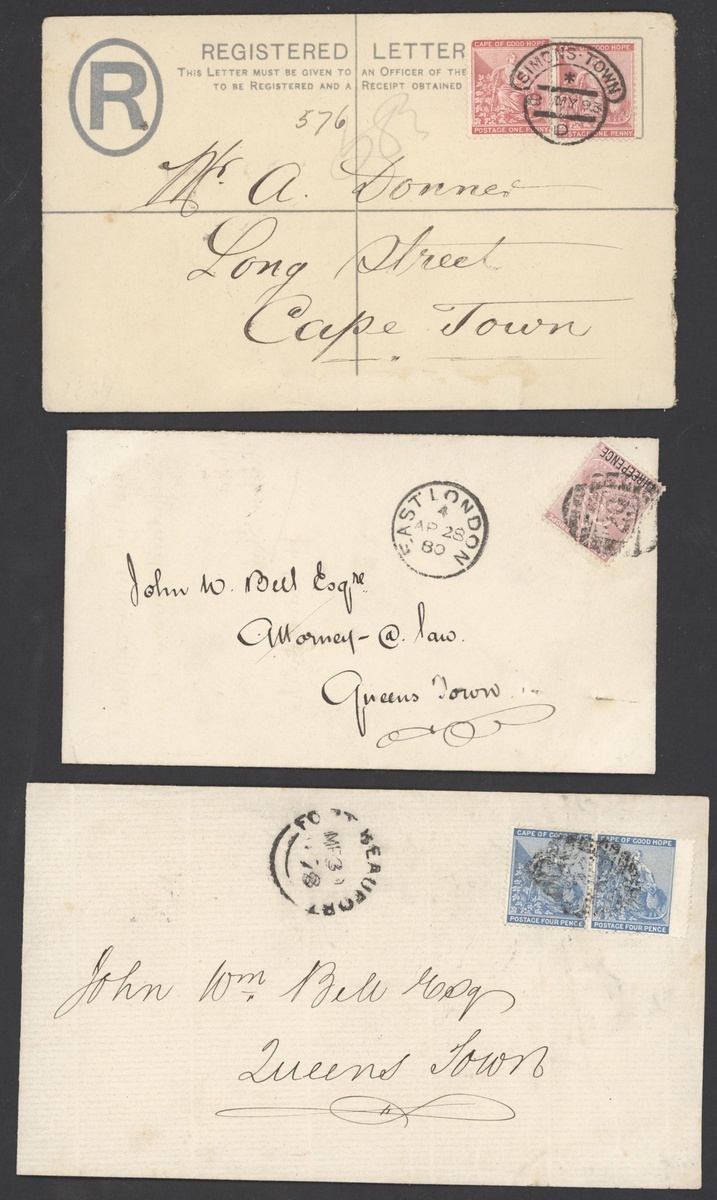 R
REGISTERED LETTER
THIS LETTER MUST BE GIVEN TO AN OFFICER OF THE
TO BE REGISTERED AND A RECEIPT OBTAINED
CAPE OF GOOD HOPE
POSTAGE ONE PENNY
CAPE OF GOOD HOPE
POSTAGE ONE PENNY
SIMONS-TOWN
*
8 MY 93
D
576
583
Mr. A. Donner
Long Street
Cape Town
EAST LONDON
4
AP 28
80
THREEPENCE
John W. Bell Esqre
Attorney-@ law.
Queens Town
FORT BEAUFORT
78
CAPE OF GOOD HOPE
POSTAGE FOUR PENCE
CAPE OF GOOD HOPE
POSTAGE FOUR PENCE
John Wm. Bell Esq
Queens Town